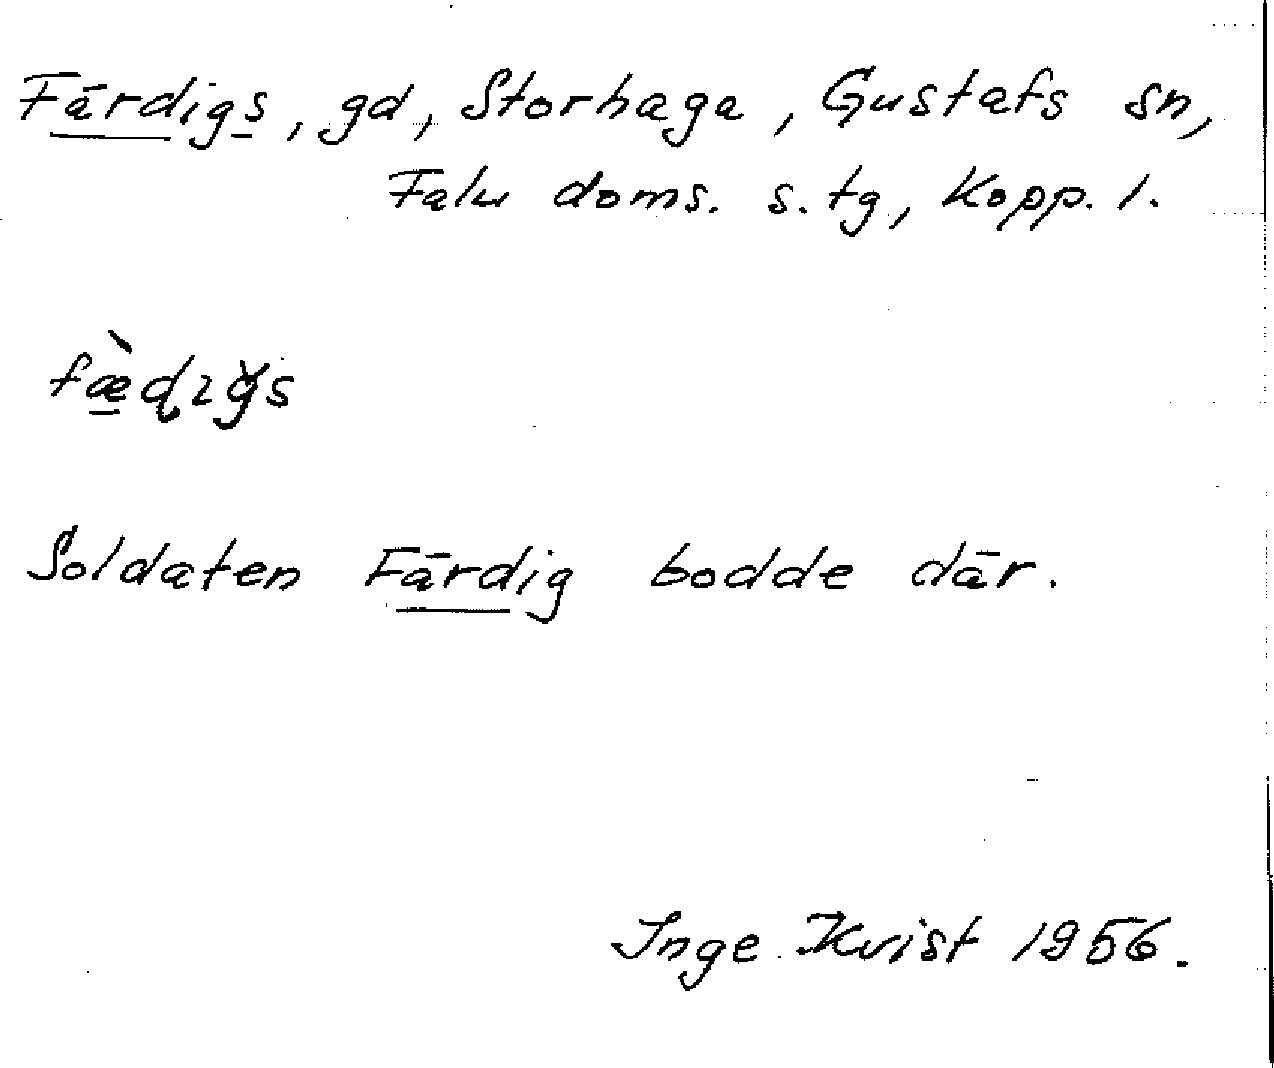 Färdigs, gd, Storhaga, Gustafs sn,
Falu doms. s. tg, Kopp. l.
fæ̀ɖɩɡ̌s
Soldaten Färdig bodde där.
Inge Kvist 1956.